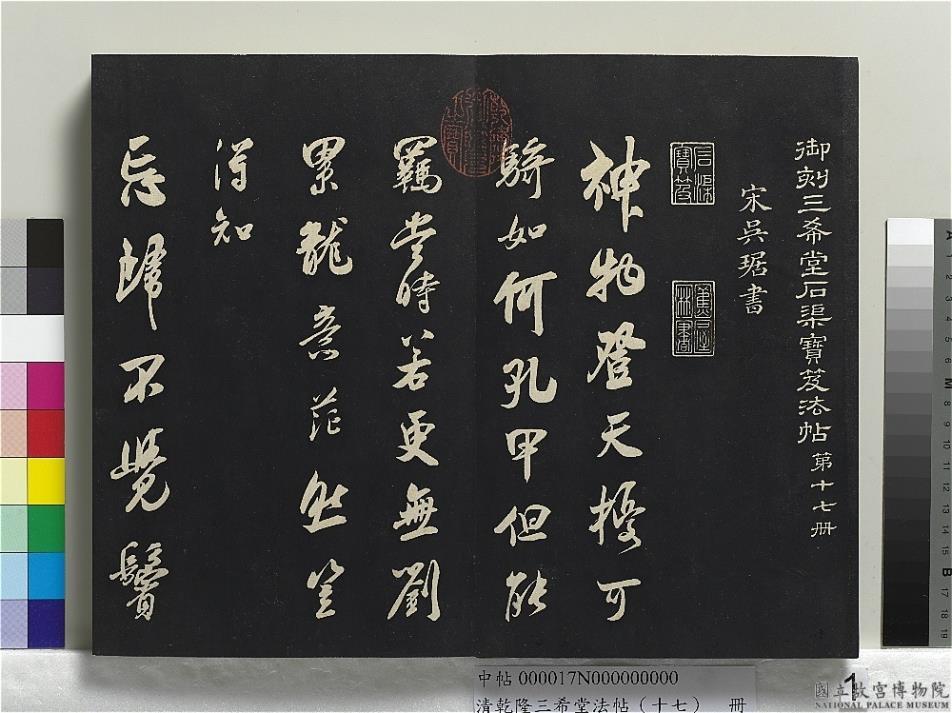 御刻三希堂石渠寶笈法帖 第十七冊
宋吳琚書
石渠寶笈
神物登天擾可
騎如何孔甲但能
羈當時若更無劉
累龍意茫然豈
得知
忘歸不覺鬢
中帖 000017N000000000
清乾隆三希堂法帖（十七） 冊
1
國立故宮博物院
NATIONAL PALACE MUSEUM